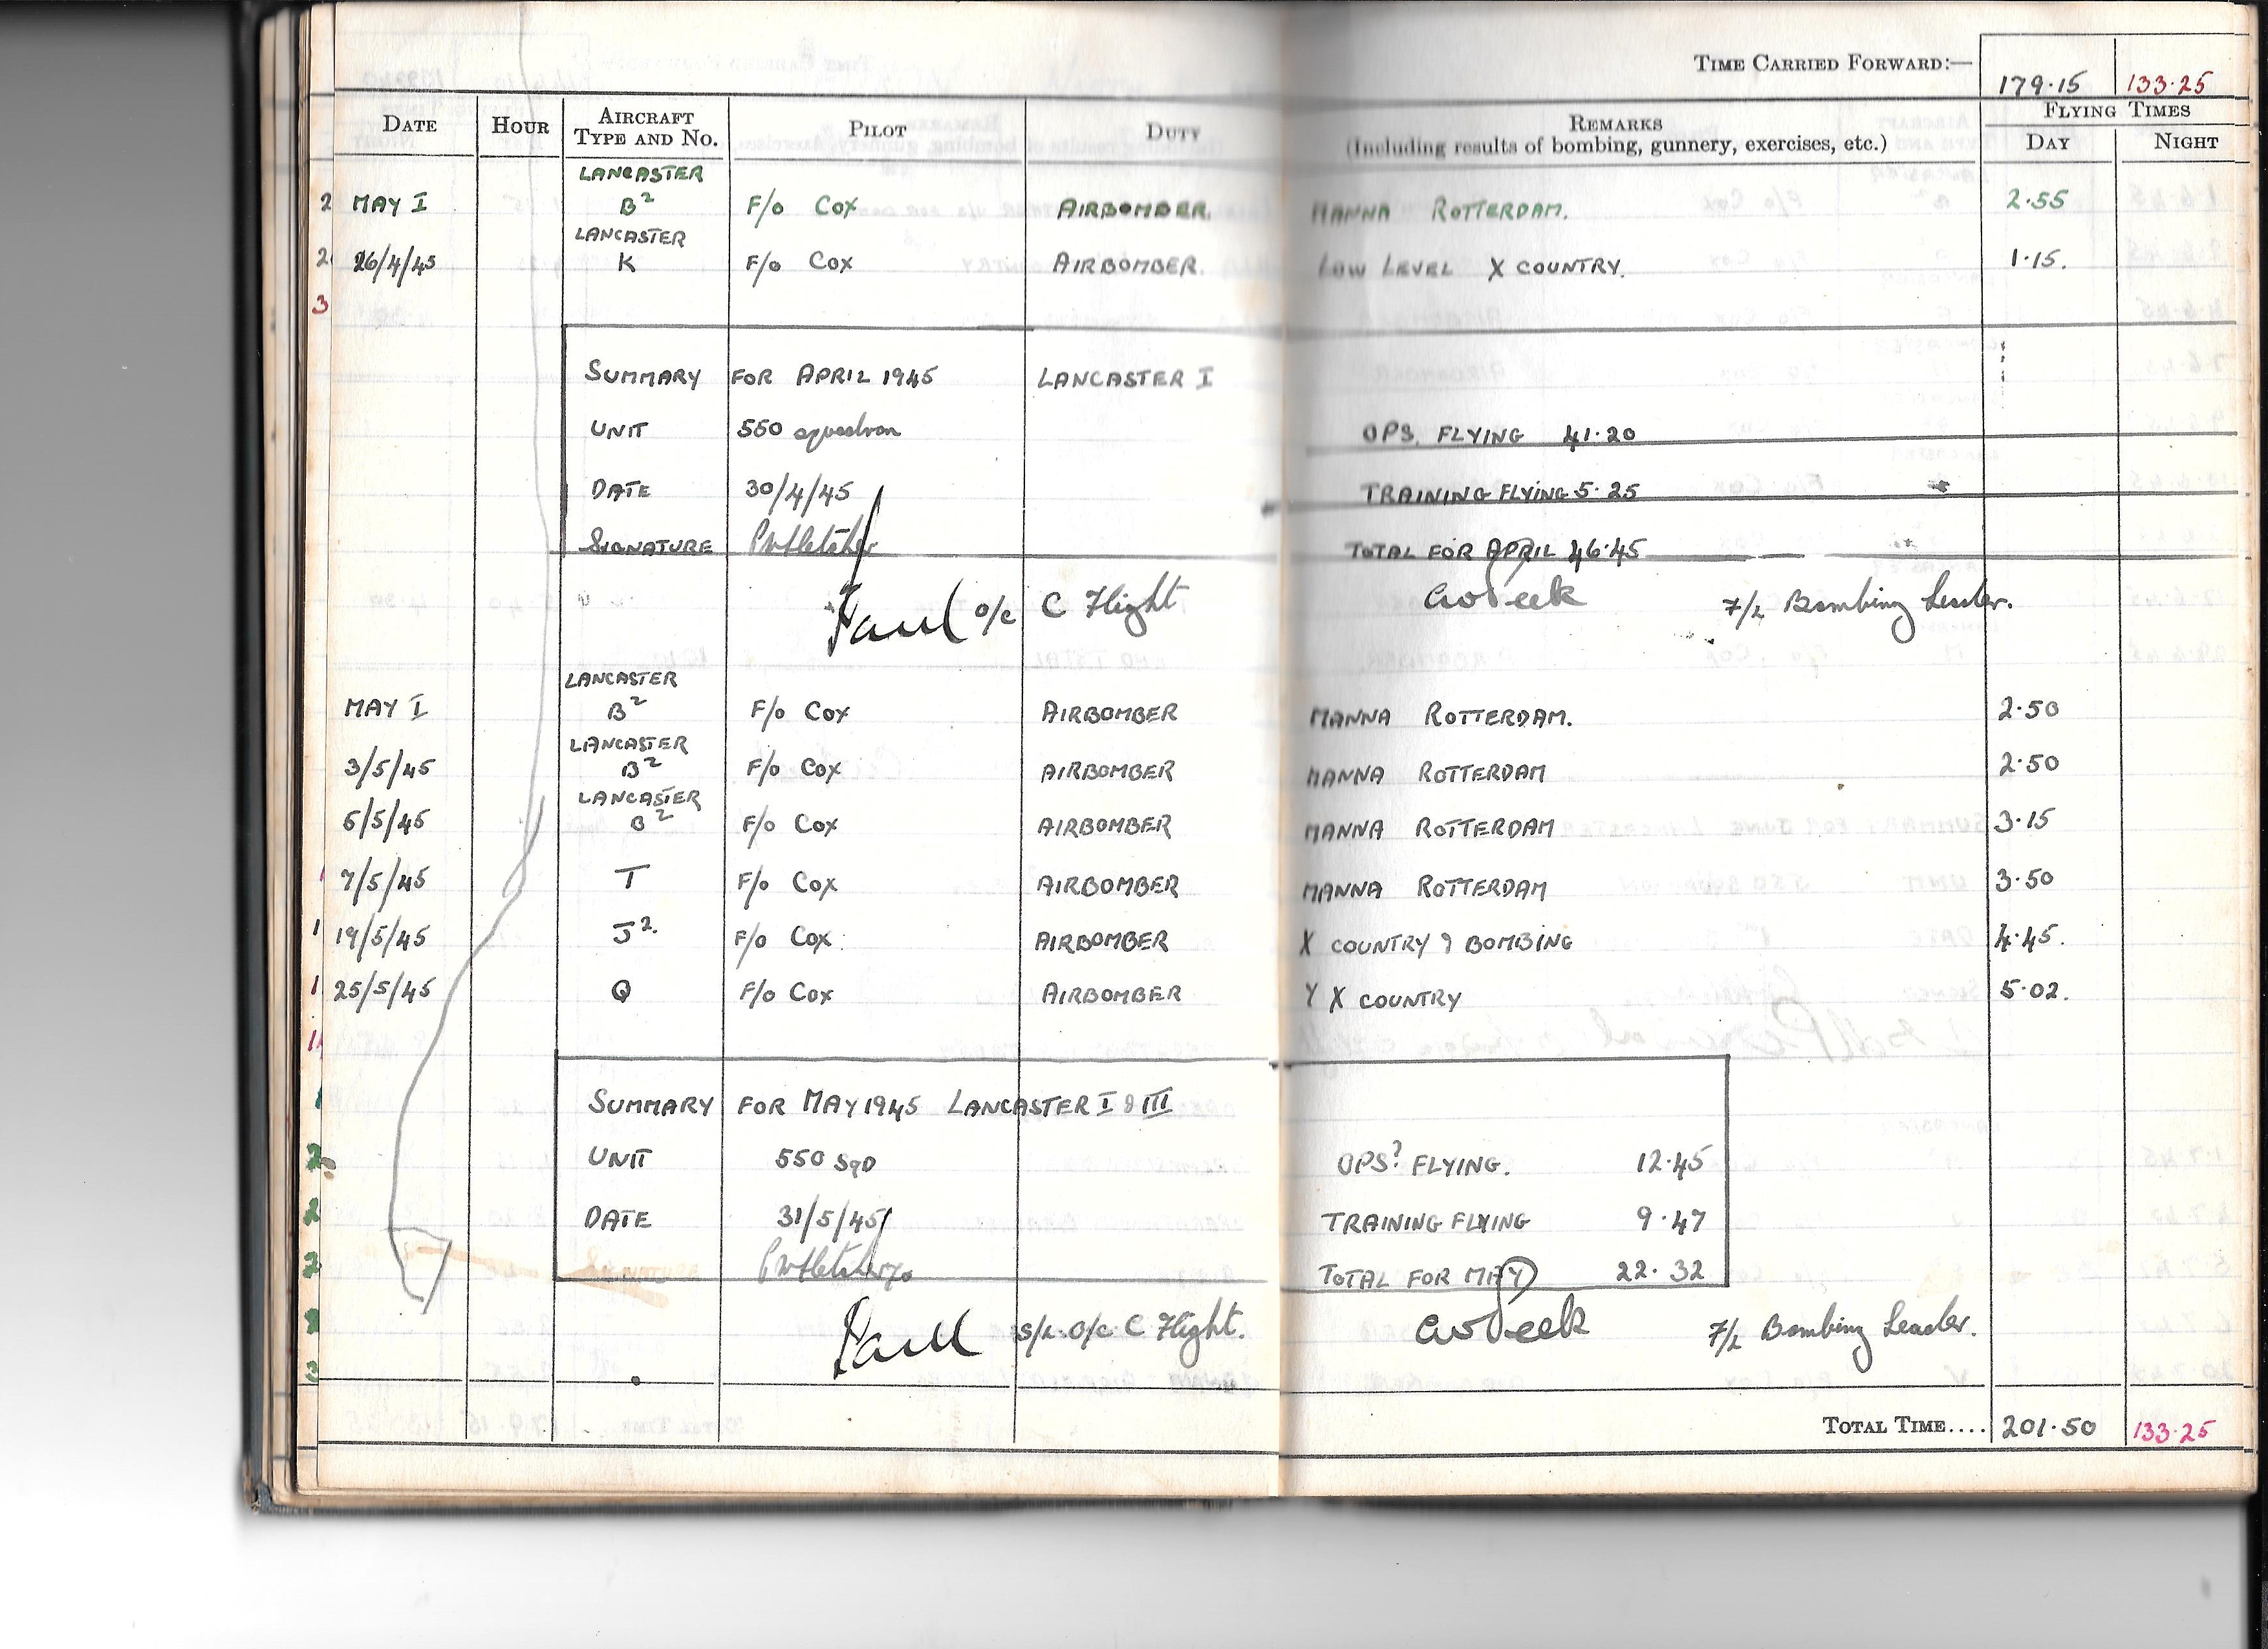 TIME CARRIED FORWARD:— 179·15 133·25
DATE HOUR AIRCRAFT TYPE AND NO. PILOT DUTY REMARKS (Including results of bombing, gunnery, exercises, etc.) FLYING TIMES DAY NIGHT
LANCASTER
2 MAY I B2 F/o COX AIRBOMBER. MANNA ROTTERDAM. 2·55
LANCASTER
2 26/4/45 K F/o COX AIRBOMBER. LOW LEVEL X COUNTRY. 1·15.
3
SUMMARY FOR APRIL 1945 LANCASTER I
UNIT 550 squadron OPS. FLYING 41·20
DATE 30/4/45 TRAINING FLYING 5·25
SIGNATURE TOTAL FOR APRIL 46·45
o/c C Flight F/L Bombing Leader.
LANCASTER
MAY I B2 F/o COX AIRBOMBER MANNA ROTTERDAM. 2·50
LANCASTER
3/5/45 B2 F/o COX AIRBOMBER MANNA ROTTERDAM 2·50
LANCASTER
5/5/45 B2 F/o COX AIRBOMBER MANNA ROTTERDAM 3·15
1 7/5/45 T F/o COX AIRBOMBER MANNA ROTTERDAM 3·50
1 19/5/45 J2. F/o COX. AIRBOMBER X COUNTRY & BOMBING 4·45.
1 25/5/45 Q F/o COX AIRBOMBER Y X COUNTRY 5·02.
SUMMARY FOR MAY 1945 LANCASTER I & III
UNIT 550 SqD OPS? FLYING. 12·45
DATE 31/5/45 TRAINING FLYING 9·47
SIGNATURE TOTAL FOR MAY 22·32
S/L. O/c C Flight. F/L Bombing Leader.
TOTAL TIME.... 201·50 133·25